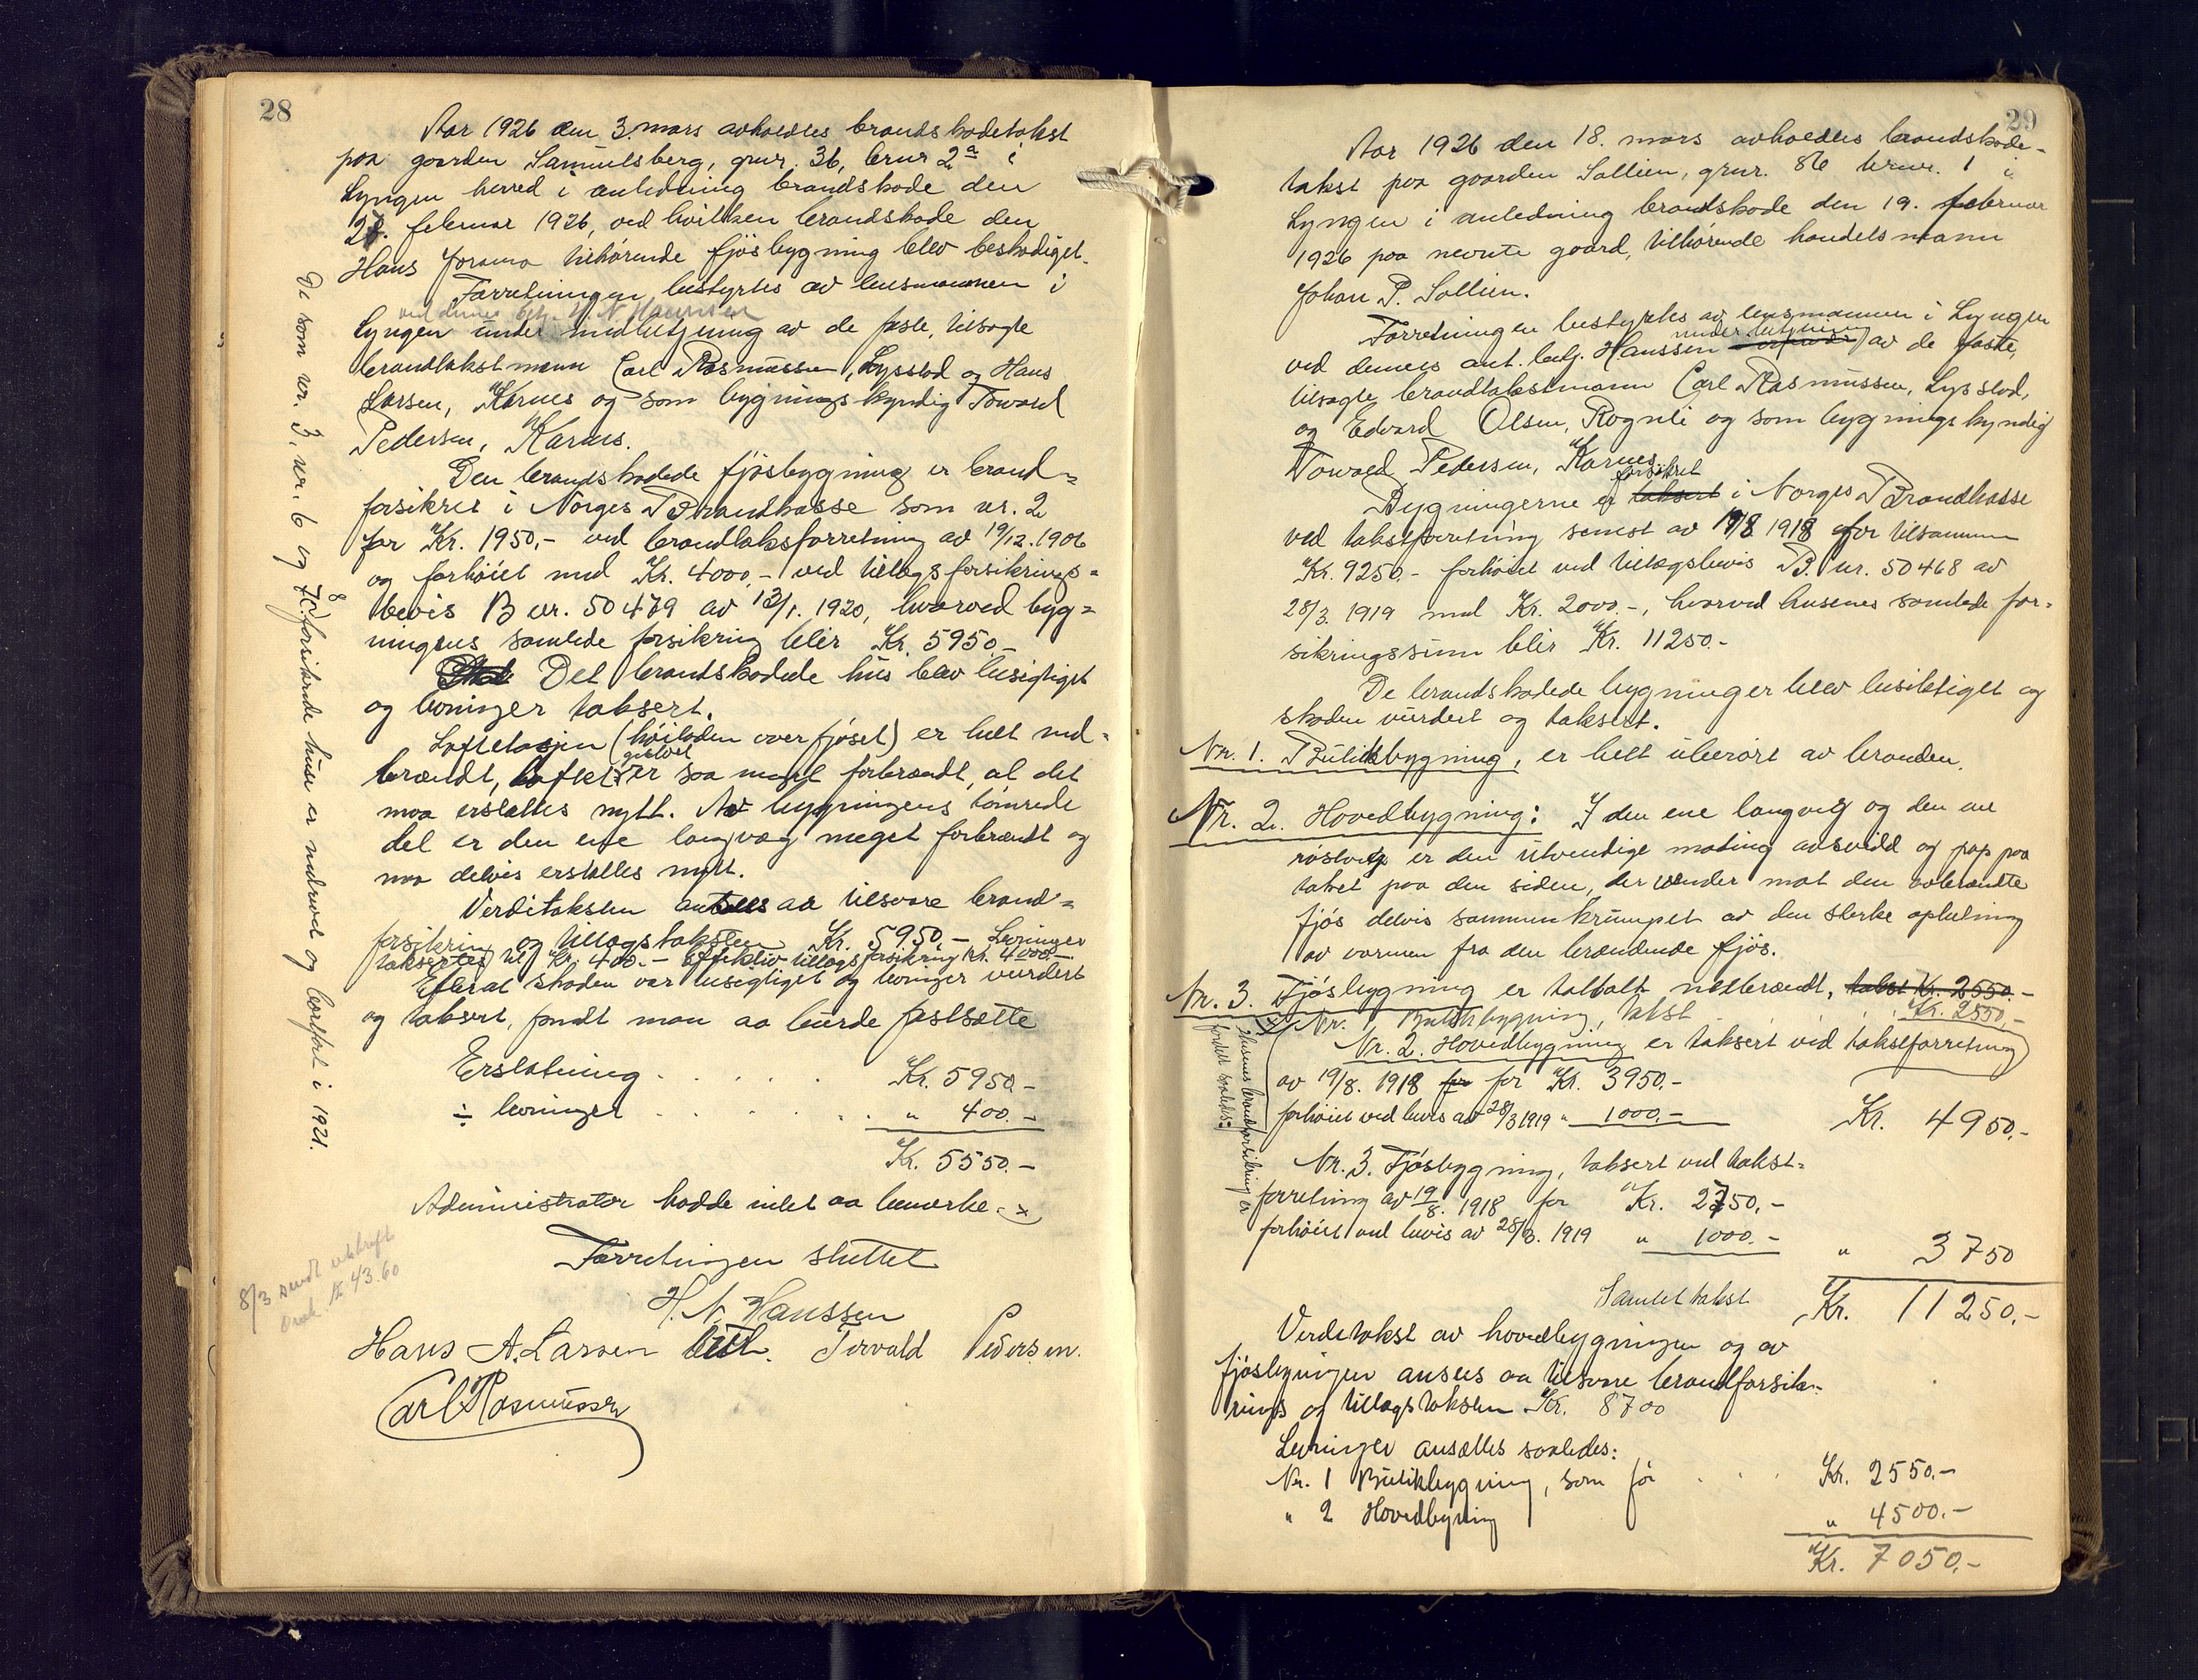 28
Aar 1926 den 3. mars avholdtes brandskadetakst
paa gaarden Samuelsberg, gnr. 36, brnr 2a i
Lyngen herred i anledning brandskade den
28. februar 1926, ved hvilken brandskade den
Hans Joramo tilhørende fjøsbygning blev beskadiget.
Forretningen bestyrtes av lensmannen i
ved dennes betj. H. N. Hanssen
Lyngen under medbetjening av de faste, tilsagte
brandtakstmenn Carl Rasmussen, Lysslod og Hans
Larsen, Karnes og som bygningskyndig Torvald
Pedersen, Karnes.
Den brandskadede fjøsbygning er brand=
forsikret i Norges Brandkasse som nr. 2
for Kr. 1950,- ved brandtakstforretning av 19/12. 1906
og forhøiet med Kr. 4000,- ved tillægsforsikrings=
bevis B nr. 50479 av 13/1. 1920, hvorved byg=
ningens samlede forsikring blir Kr. 5950.-
Det brandskadede hus blev besigtiget
og levninger taksert.
Loftetasjen (høiladen over fjøset) er helt ned=
gulvet
brændt, loftet er saa meget forbrændt, at det
maa erstattes nytt. Av bygningens tømrede
del er den ene langvæg meget forbrændt og
maa delvis erstattes nytt.
Verditaksten antaes aa tilsvare brand=
forsikring og tillægstaksten Kr. 5950,- Levninger
taksertes til Kr. 400.- Effektiv tillægsforsikring kr. 4000.-
Efterat skaden var besigtiget og levninger vurdert
og taksert, fandt man aa burde fastsætte
Erstatning . . . . Kr. 5950.-
÷ levninger . . . . " 400.-
Kr. 5550.-
Administrator hadde intet aa bemerke. x)
Forretningen sluttet
H. N. Hanssen
Hans A. Larsen Torvald Pedersen.
Carl Rasmussen
De som nr. 3, nr. 6 og 7 8 forsikrede huse er nedrevet og bortført i 1921.
8/3 sendt utskrift
Kr. 43.60
29
Aar 1926 den 18. mars avholdtes brandskade-
takst paa gaarden Sollien, gnr. 86 brnr. 1 i
Lyngen i anledning brandskade den 19. februar
1926 paa nevnte gaard, tilhørende handelsmann
Johan P. Sollien.
Forretningen bestyrtes av lensmannen i Lyngen
under betjening
ved dennes aut. betj. Hanssen av de faste,
tilsagte brandtakstmenn Carl Rasmussen, Lysslod,
og Edvard Olsen, Rognli og som bygningskyndig
Torvald Pedersen, Karnes.
forsikret
Bygningerne er taksert i Norges Brandkasse
ved takstforretning senest av 19/8 1918 for tilsammen
Kr. 9250,- forhøiet ved tillægsbevis B. nr. 50468 av
28/3. 1919 med Kr. 2000.-, hvorved husenes samlede for=
sikringssum blir Kr. 11250.-
De brandskadede bygninger blev besiktiget og
skaden vurdert og taksert.
Nr. 1. Butikbygning, er helt uberørt av branden.
Nr. 2. Hovedbygning: I den ene langveg og den ene
røstveg er den utvendige maling avsvidd og pap paa
taket paa den siden, der vender mot den avbrændte
fjøs delvis sammenkrumpet av den sterke ophetning
av varmen fra den brændende fjøs.
Nr. 3. Fjøsbygning er totalt nedbrændt, takst Kr. 2550.-
x) Nr. 1 Butikbygning, takst . . . Kr. 2550,-
Nr. 2. Hovedbygning er taksert ved takstforretning
av 19/8. 1918 for for Kr. 3950.-
forhøiet ved bevis av 28/3 1919 " 1000.- Kr. 4950,-
Nr. 3. Fjøsbygning, taksert ved takst=
forretning av 19/8. 1918 for Kr. 2750,-
forhøiet ved bevis av 28/3. 1919 " 1000.- " 3750
Samlet takst Kr. 11250,-
x) Husenes brandforsikring er
fordelt saaledes:
Verditakst av hovedbygningen og av
fjøsbygningen ansees aa tilsvare brandforsik-
rings og tillægstaksten Kr. 8700
Levninger ansættes saaledes:
Nr. 1 Butikbygning, som før . . . Kr. 2550.-
" 2 Hovedbygning " 4500.-
Kr. 7050,-